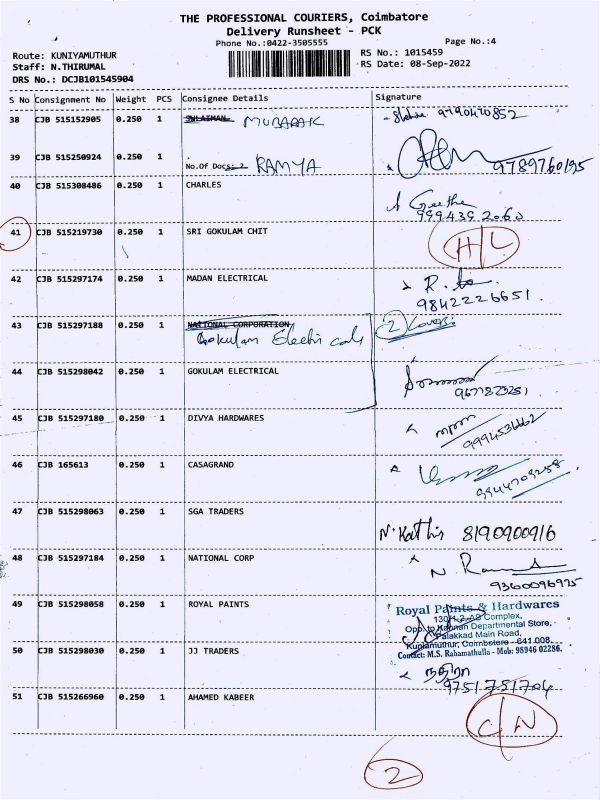 THE PROFESSIONAL COURIERS, Coimbatore
Delivery Runsheet - PCK
Phone No.:0422-3505555
Page No.:4
Route: KUNIYAMUTHUR
RS No.: 1015459
Staff: N.THIRUMAL
RS Date: 08-Sep-2022
DRS No.: DCJB101545904
S No Consignment No Weight PCS Consignee Details Signature
38 CJB 515152905 0.250 1 SULAIMAN MUBARAK 9790470852
39 CJB 515250924 0.250 1 No.Of Docs: 2 RAMYA 9789760195
40 CJB 515308486 0.250 1 CHARLES Geetha
999439 2060
41 CJB 515219730 0.250 1 SRI GOKULAM CHIT H/L
42 CJB 515297174 0.250 1 MADAN ELECTRICAL
9842226651.
43 CJB 515297188 0.250 1 NATIONAL CORPORATION 2 Covers.
Gokulam Electricals
44 CJB 515298042 0.250 1 GOKULAM ELECTRICAL
45 CJB 515297180 0.250 1 DIVYA HARDWARES
9994536662
46 CJB 165613 0.250 1 CASAGRAND
9944709258
47 CJB 515298063 0.250 1 SGA TRADERS
N. Kathir 8190900916
48 CJB 515297184 0.250 1 NATIONAL CORP
9360096925
49 CJB 515298058 0.250 1 ROYAL PAINTS Royal Paints & Hardwares
Complex,
Opp. to Kannan Departmental Store,
Palakkad Main Road,
Kuniamuthur, Coimbatore - 641 008.
50 CJB 515298030 0.250 1 JJ TRADERS Contact: M.S. Rahamathulla - Mob: 98946 02286.
நதிரா
9751751704
51 CJB 515266960 0.250 1 AHAMED KABEER C/N
2